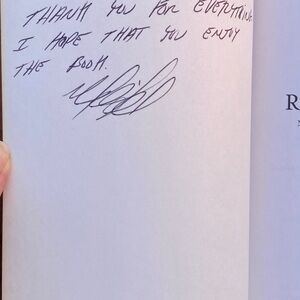 THANK YOU FOR EVERYTHING
I HOPE THAT YOU ENJOY
THE BOOK.
R